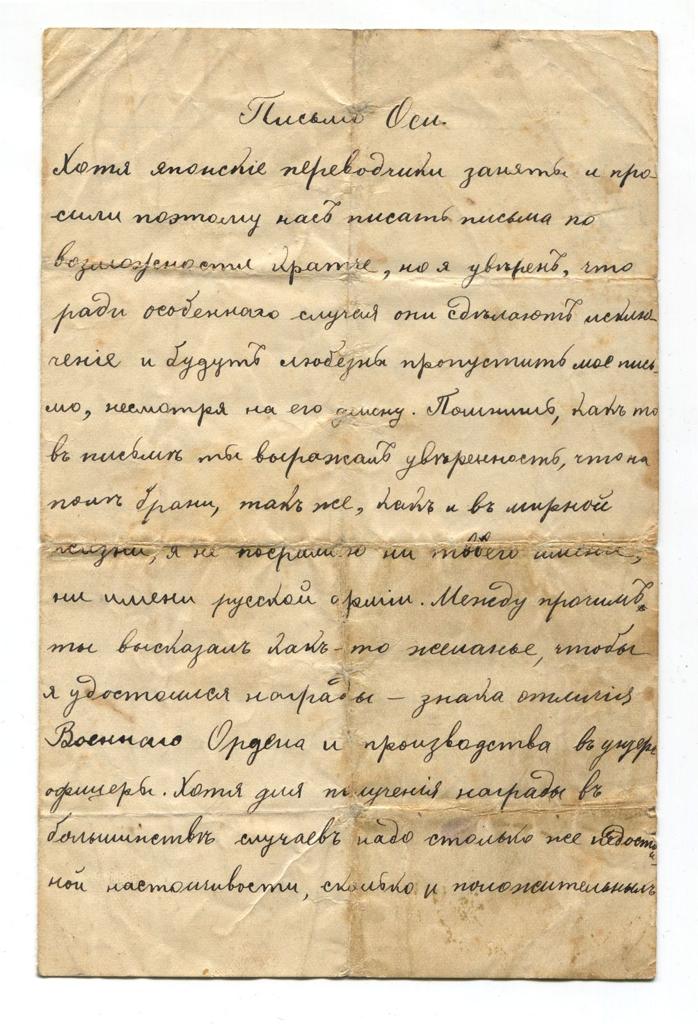 Письмо Оси.
Хотя японскіе переводчики заняты и про-
сили поэтому насъ писать письма по
возможности кратче, но я увѣренъ, что
ради особеннаго случая они сдѣлаютъ исклю-
ченіе и будутъ любезны пропустить мое пись-
мо, несмотря на его длину. Помнишь, какъ то
въ письмѣ ты выражалъ увѣренность, что на
полѣ брани, такъ же, какъ и въ мирной
жизни, я не посрамлю ни твоего имени,
ни имени русской арміи. Между прочимъ,
ты высказалъ какъ-то желанье, чтобы
я удостоился награды – знака отличія
Военнаго Ордена и производства въ унтеръ
офицеры. Хотя для полученія награды въ
большинствѣ случаевъ надо столько же
ной настойчивости, сколько и положительныхъ